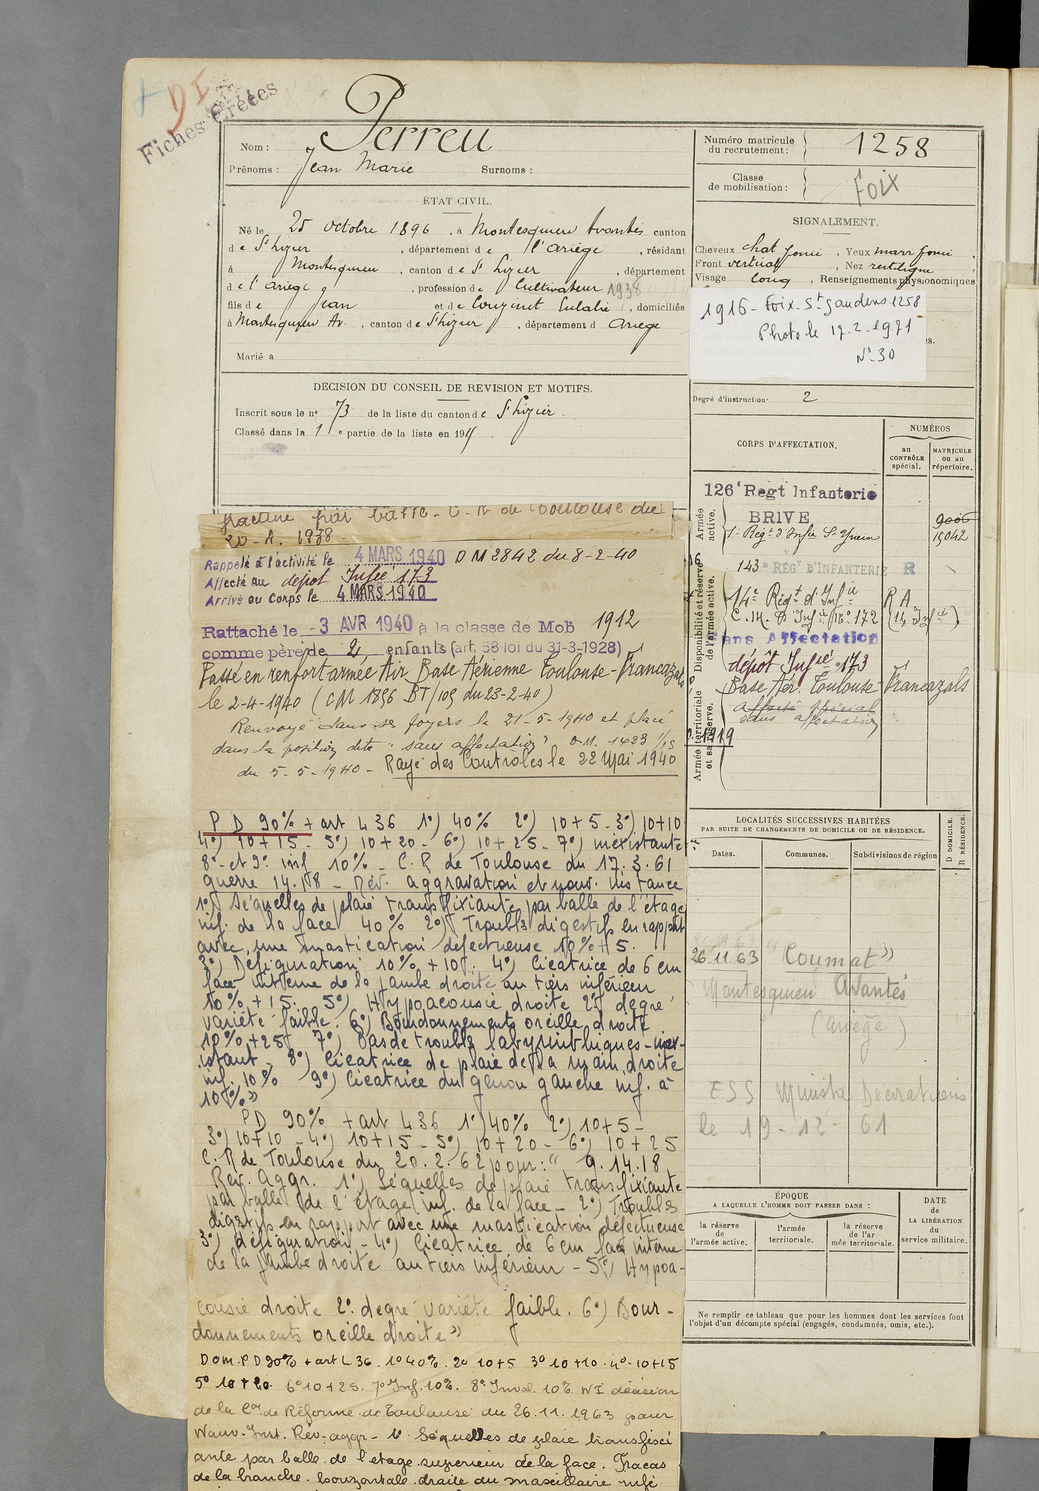 + DI
Fiches Créées
Nom : Perreu
Prénoms : Jean Marie Surnoms :
ÉTAT CIVIL.
Né le 25 octobre 1896, à Montesquieu Avantès canton
de St Lizier, département de l'Ariège, résidant
à Montesquieu, canton de St Lizier, département
de l'Ariège, profession de Cultivateur 1938
fils de Jean et de Eulalie, domiciliés
à Montesquieu Av., canton de St Lizier, département d Ariège
Marié à
DÉCISION DU CONSEIL DE REVISION ET MOTIFS.
Inscrit sous le n° 73 de la liste du canton de St Lizier.
Classé dans la 1e partie de la liste en 191
fracture par balle. C. R de Toulouse du
20-1. 1938
Rappelé à l'activité le 4 MARS 1940 DM 2842 du 8-2-40
Affecté au dépôt Infie 173
Arrivé au Corps le 4 MARS 1940
Rattaché le -3 AVR 1940 à la classe de Mob 1912
comme père de 2 enfants (art. 58 loi du 31-3-1928)
Passé en renfort armée Air Base Aérienne Toulouse-Francazals
le 2-4-1940 (CM 1896 BT/103 du 23-2-40)
Renvoyé dans ses foyers le 21-5-1940 et placé
dans la position dite "sans affectation" D.M. 1423 1/
du 5-5-1940 - Rayé des Contrôles le 22 Mai 1940
PD 90% + art L36 1°) 40% 2°) 10+5 - 3°) 10+10
4°) 10+15 - 5°) 10+20 - 6°) 10+25 - 7°) inexistante
8° et 9° inf 10% - C.R de Toulouse du 17.3.61
guerre 14.18 - Rév. aggravation et nouv. instance
1°) Séquelles de plaie transfixiante par balle de l'étage
inf. de la face 40% 2°) Troubles digestifs en rapport
avec une mastication défectueuse 10% + 5.
3°) Défiguration 10% + 10. 4°) Cicatrice de 6 cm
face interne de la jambe droite au tiers inférieur
10% + 15. 5°) Hypoacousie droite 2° degré
variété faible. 6°) Bourdonnements oreille droite
10% + 25 7°) Pas de troubles labyrinthiques - inex-
istant - 8°) Cicatrice de plaie de la main droite
inf. 10% 9°) Cicatrice du genou gauche inf. à
10%"
PD 90% + art L36 1°) 40% 2°) 10+5 -
3°) 10+10 - 4°) 10+15 - 5°) 10+20 - 6°) 10+25
C.R de Toulouse du 20.2.62 pour: " G.14.18
Rev. aggr. 1°) Séquelles de plaie transfixiante
par balle de l'étage inf. de la face - 2°) Troubles
digestifs en rapport avec une mastication défectueuse
3°) Défiguration - 4°) Cicatrice de 6 cm face interne
de la jambe droite au tiers inférieur - 5°) Hypoa-
cousie droite 2° degré variété faible. 6°) Bour-
donnements oreille droite"
Dom. PD 90% + art L 36. 1° 40%. 2° 10+5 3° 10+10. 4° 10+15
5° 10+20. 6° 10+25. 7° Inf. 10%. 8° Inval. 10% NI décision
de la Con de Réforme de Toulouse du 26.11.1963 pour
Nouv. Inst. Rév. aggr - 1° Séquelles de plaie transfixi
ante par balle de l'étage superieur de la face. Fracas
de la branche horizontale droite du maxillaire infé
Numéro matricule du recrutement : 1258
Classe de mobilisation : Foix
SIGNALEMENT.
Cheveux chat foncé, Yeux marr foncé,
Front vertical, Nez rectiligne
Visage long, Renseignements physionomiques
1916 - Foix. St Gaudens 1258
Photo le 17-2-1971
N° 30
Degré d'instruction : 2
CORPS D'AFFECTATION.
NUMÉROS
au CONTRÔLE spécial.
MATRICULE ou au répertoire.
Armée active.
126e Regt Infanterie
BRIVE
9006
1er Régt d'Infie
15042
Disponibilité et réserve de l'armée active.
143e RÉGt D'INFANTERIE R
14e Régt d'Infie R A
C. M. D'Infie 16e 172
Sans Affectation
dépôt Infie 173
Armée territoriale et sa réserve.
Base Aér. Toulouse-Francazals
Affecté spécial
sans affectation
1919
LOCALITÉS SUCCESSIVES HABITÉES
PAR SUITE DE CHANGEMENTS DE DOMICILE OU DE RÉSIDENCE.
Dates.
Communes.
Subdivisions de région
D DOMICILE.
R RÉSIDENCE.
26.11.63 "Coumat"
Montesquieu Avantès
(Ariège)
le 19-12-61
ÉPOQUE
A LAQUELLE L'HOMME DOIT PASSER DANS :
la réserve de l'armée active.
l'armée territoriale.
la réserve de l'armée territoriale.
DATE
de
LA LIBÉRATION
du
service militaire.
Ne remplir ce tableau que pour les hommes dont les services font
l'objet d'un décompte spécial (engagés, condamnés, omis, etc.).